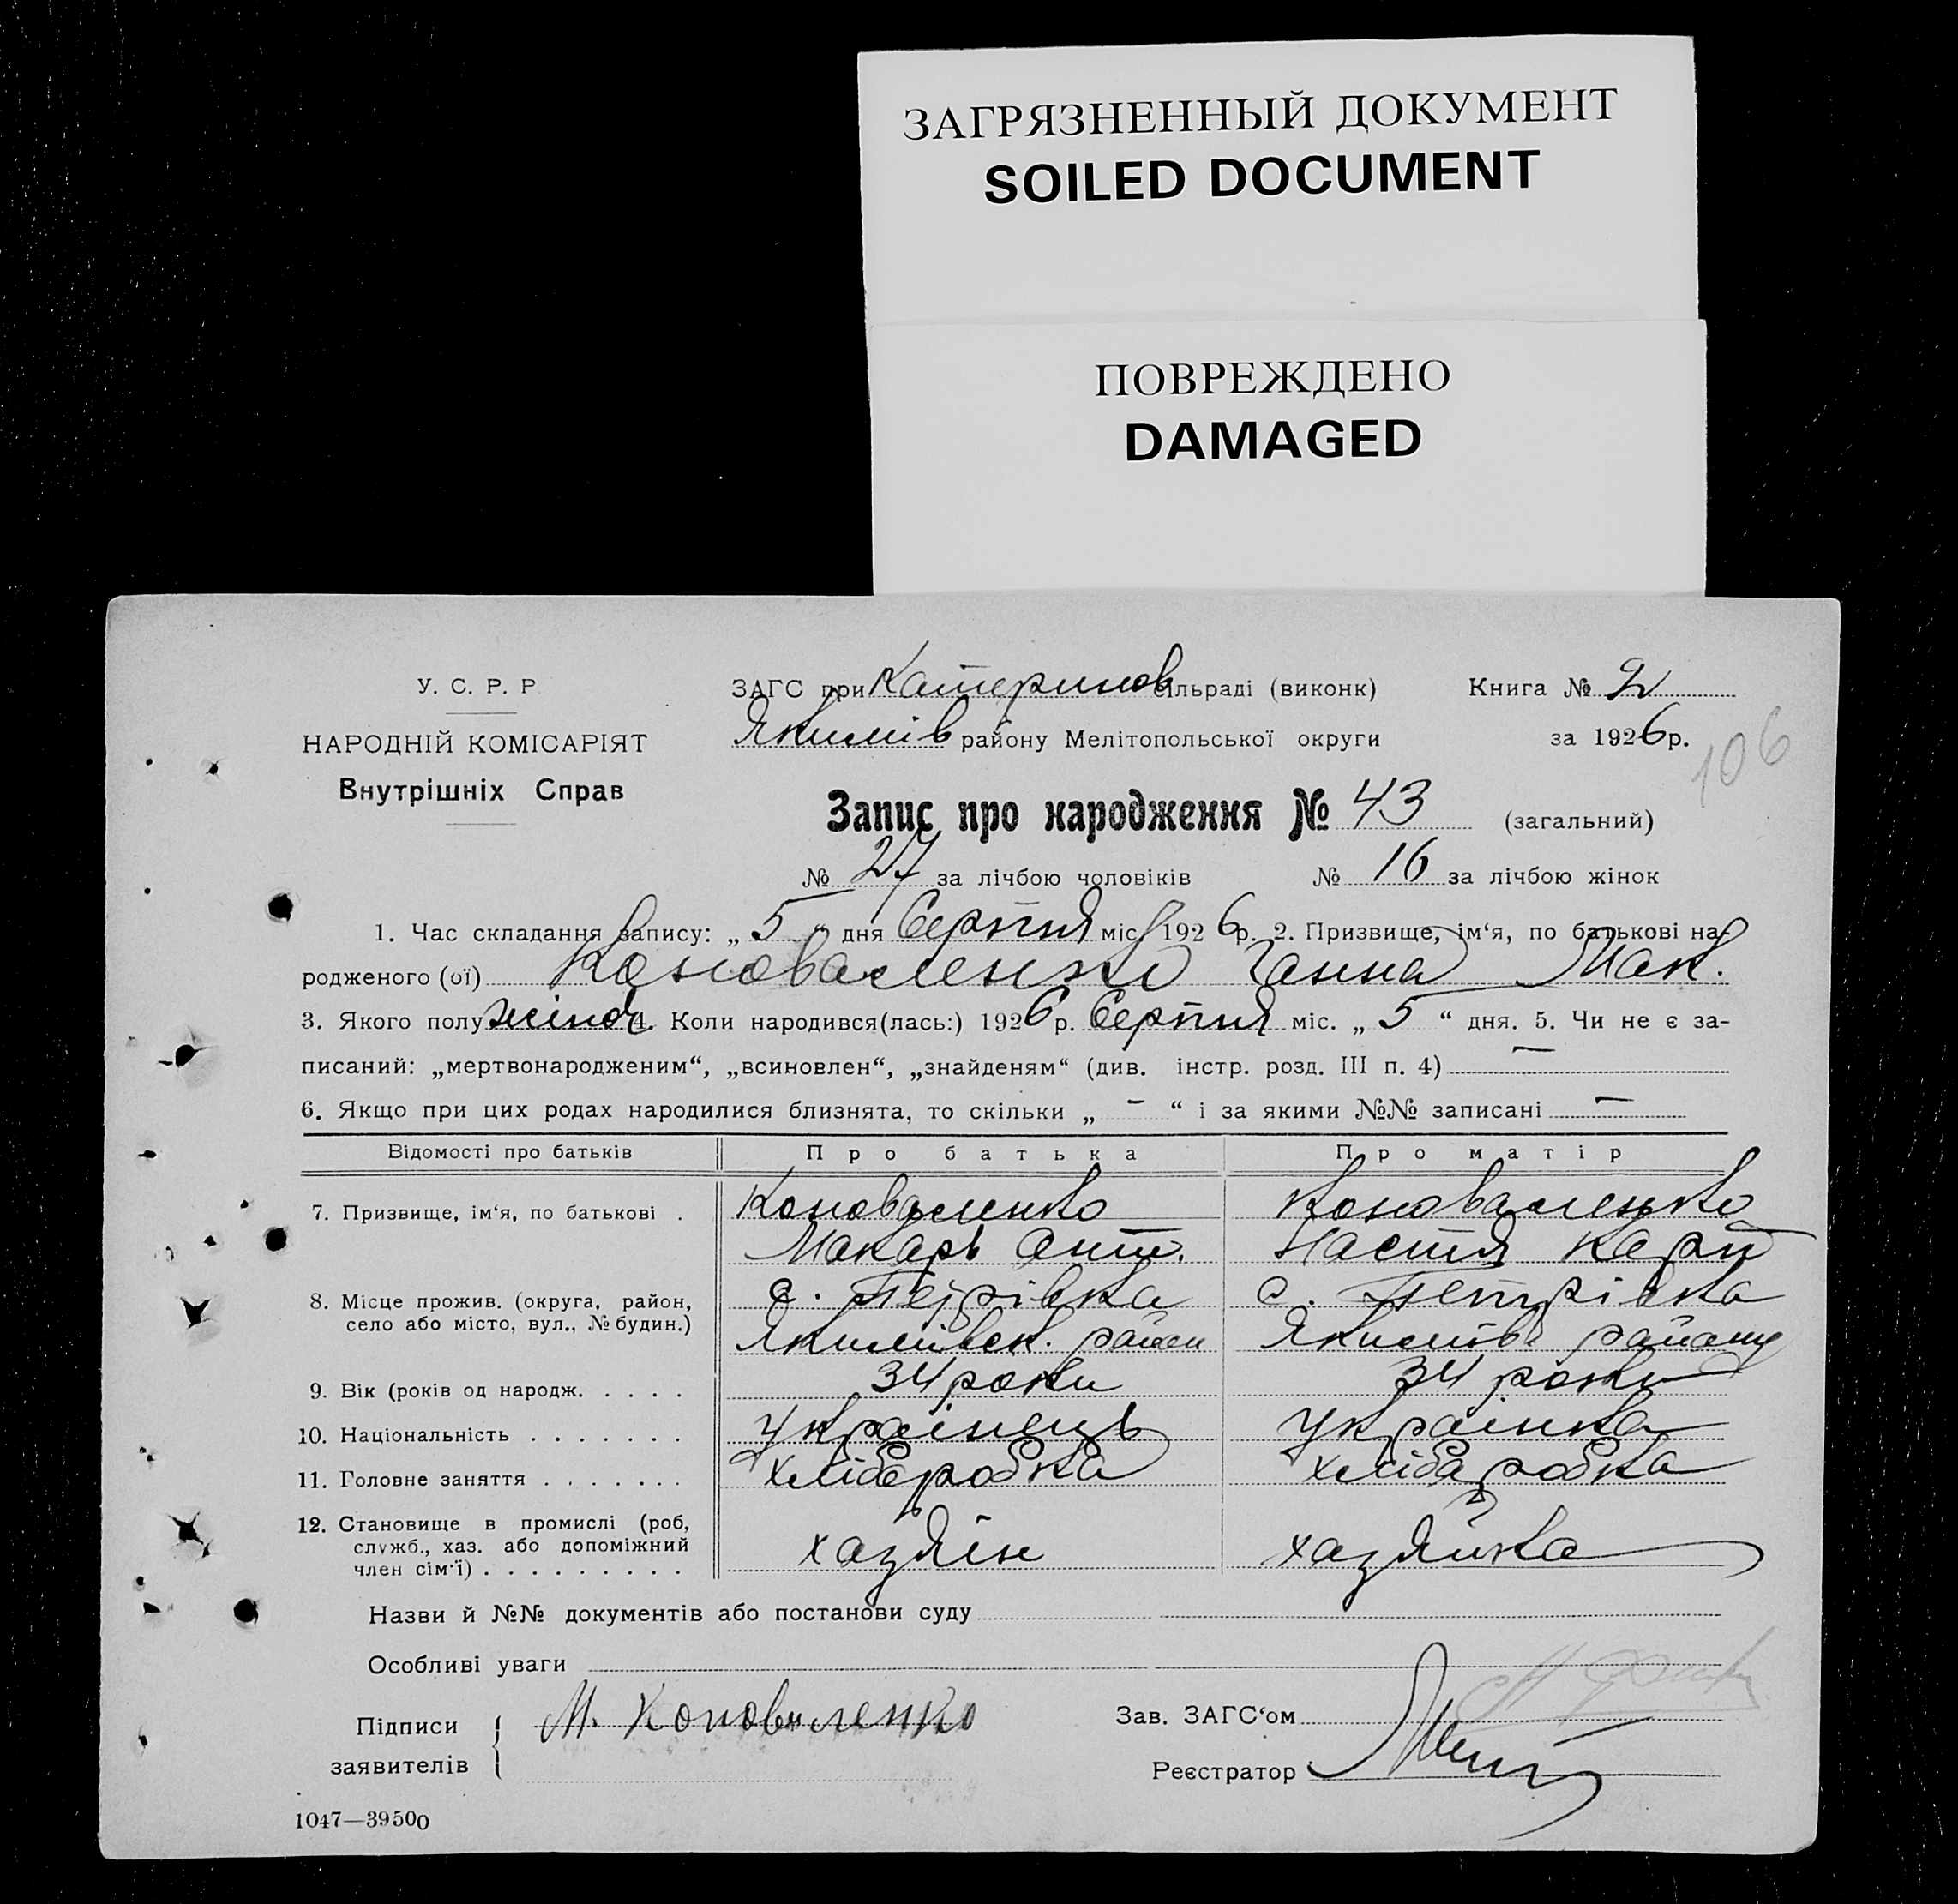 ЗАГРЯЗНЕННЫЙ ДОКУМЕНТ
SOILED DOCUMENT
ПОВРЕЖДЕНО
DAMAGED
У. С. Р. Р
НАРОДНІЙ КОМІСАРІЯТ
Внутрішніх Справ
ЗАГС при Катеринов сільраді (виконк) Книга № 2
Якимів району Мелітопольської округи за 1926 р.
106
Запис про народження № 43 (загальний)
№ 27 за лічбою чоловіків № 16 за лічбою жінок
1. Час складання запису: „ 5 “ дня Серпня міс 1926 р. 2. Призвище, ім‘я, по батькові на-
родженого (ої) Коноваленко Ганна Мак.
3. Якого полу жіноч 4. Коли народився(лась:) 1926 р. Серпня міс. „ 5 “ дня. 5. Чи не є за-
писаний: „мертвонародженим“, „всиновлен“, „знайденям“ (див. інстр. розд. III п. 4) —
6. Якщо при цих родах народилися близнята, то скільки „ – “ і за якими №№ записані —
Відомості про батьків Про батька Про матір
7. Призвище, ім‘я, по батькові . Коноваленко Коноваленко
Макарь Ант. Настя Карп
8. Місце прожив. (округа, район, с. Петрівка с. Петрівка
село або місто, вул., № будин.) Якимівськ. район Якимів. району
9. Вік (років од народж. . . . . 34 роки 34 роки
10. Національність . . . . . . . Українець Українка
11. Головне заняття . . . . . . . хлібаробка хлібаробка
12. Становище в промислі (роб,
служб., хаз. або допоміжний хазяін хазяйка
член сім‘ї) . . . . . . . . .
Назви й №№ документів або постанови суду
Особливі уваги
Підписи М. Коноваленко Зав. ЗАГС‘ом
заявителів Реєстратор
1047—39500